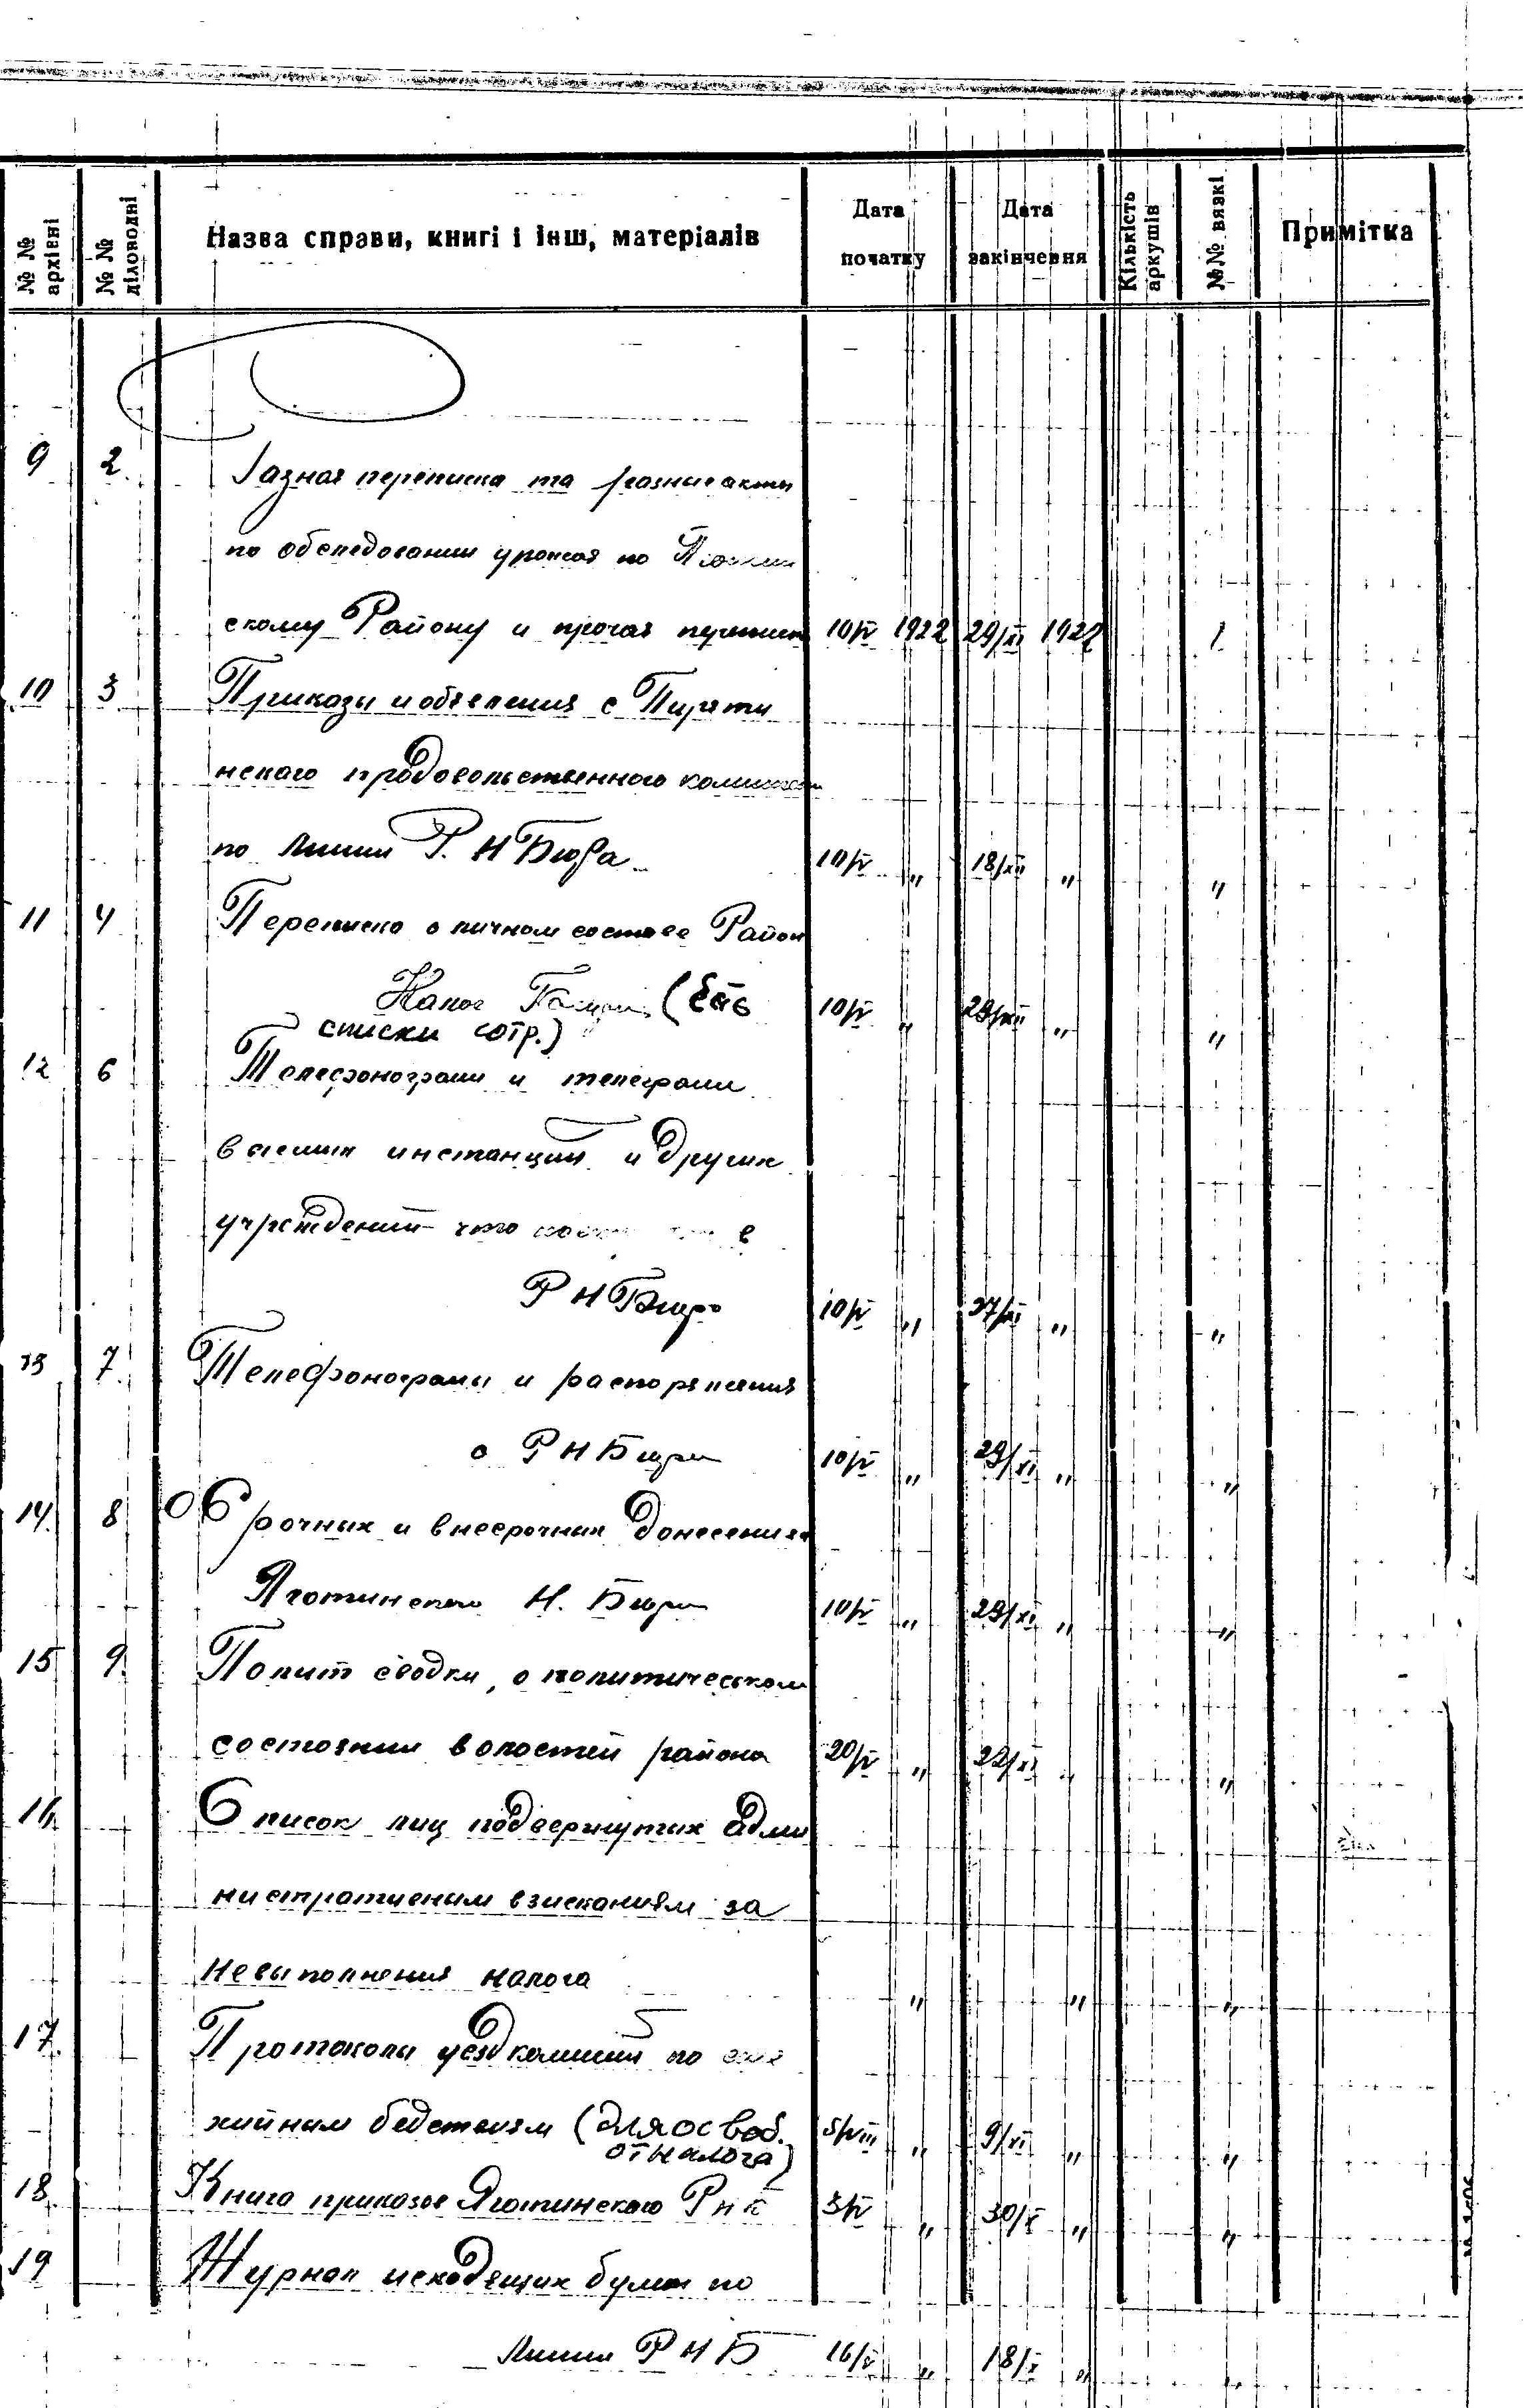 № № архівні
№ № діловодні
Назва справи, книгі і інш, матеріалів
Дата початку
Дата закінчення
Кількість аркушів
№№ вязкі
Примітка
9 2 Разная переписка та разные акты
по обследовании урожая по
скому Району и прочая 10/V 1922 29/XI 1922 1
10 3 Приказы и объявления с Пиряти
нского продовольственного
по линии Р. Н Бюра 10/V " 18/XII " "
11 4 Переписка о личном составе Район
Налог (есть 10/V " "
списки сотр.)
12 6 Телефонограми и телеграми
высших инстанций и других
учреждений что в
Р Н Бюро 10/V " 27/XI " "
13 7 Телефонограми и распоряжения
о Р Н Бюро 10/V " 29/XI " "
14 8 О срочных и внесрочных донесениях
Яготинского Н. Бюро 10/V " 29/XI " "
15 9 Полит сводки, о политическом
состоянии волостей района 20/V " 22/XI " "
16 Список лиц подвергнутых Адми
нистративным взысканиям за
невыполнения налога " " "
17 Протоколы уездкомиссий по
хийным бедствиям (для освоб. 5/VIII " 9/XI " "
от налога)
18 Книга приказов Яготинского Р н к 3/V " 30/X " "
19 Журнал исходящих бумаг по
линии Р Н Б 16/V " 18/X " "